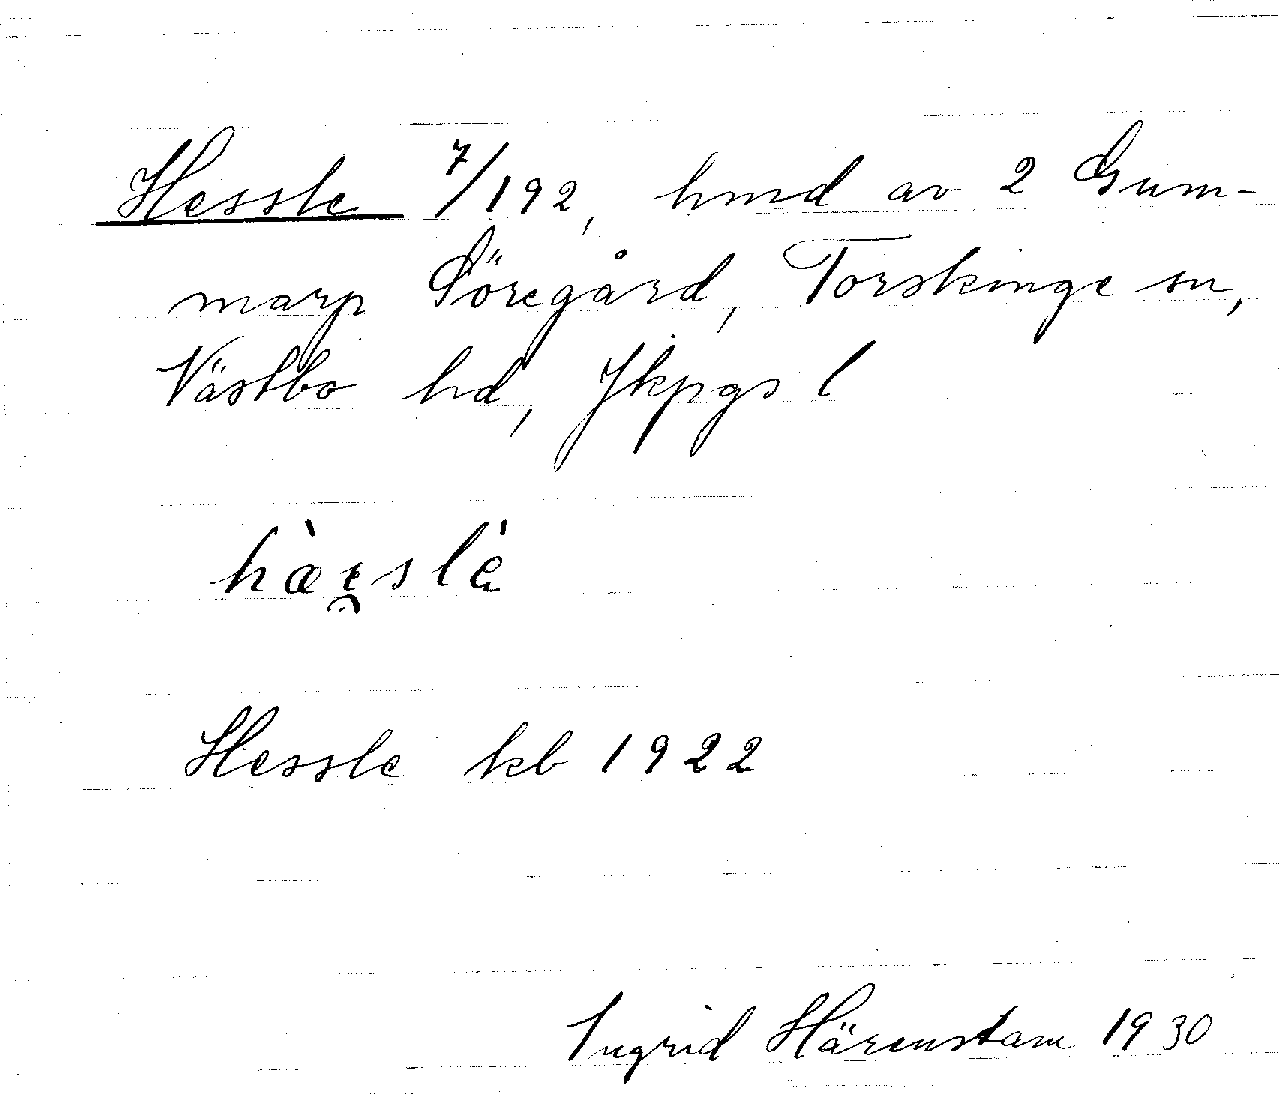 Hessle 7/192, hmd av 2 Gum-
marp Söregård, Torskinge sn,
Västbo hd, Jkpgs l
Hessle kb 1922
Ingrid Härenstam 1930